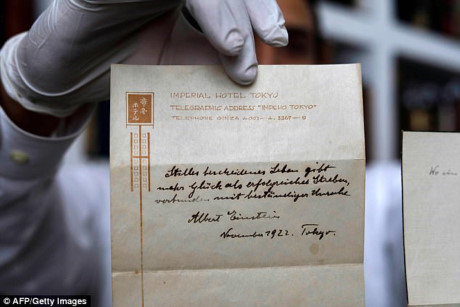 IMPERIAL HOTEL TOKYO
TELEGRAPHIC ADDRESS "IMPEHO TOKYO"
TELEPHONE GINZA
Stilles bescheidenes Leben gibt
mehr Glück als erfolgreiches Streben,
verbunden mit beständiger Unruhe.
Albert Einstein
November 1922. Tokyo.
© AFP/Getty Images